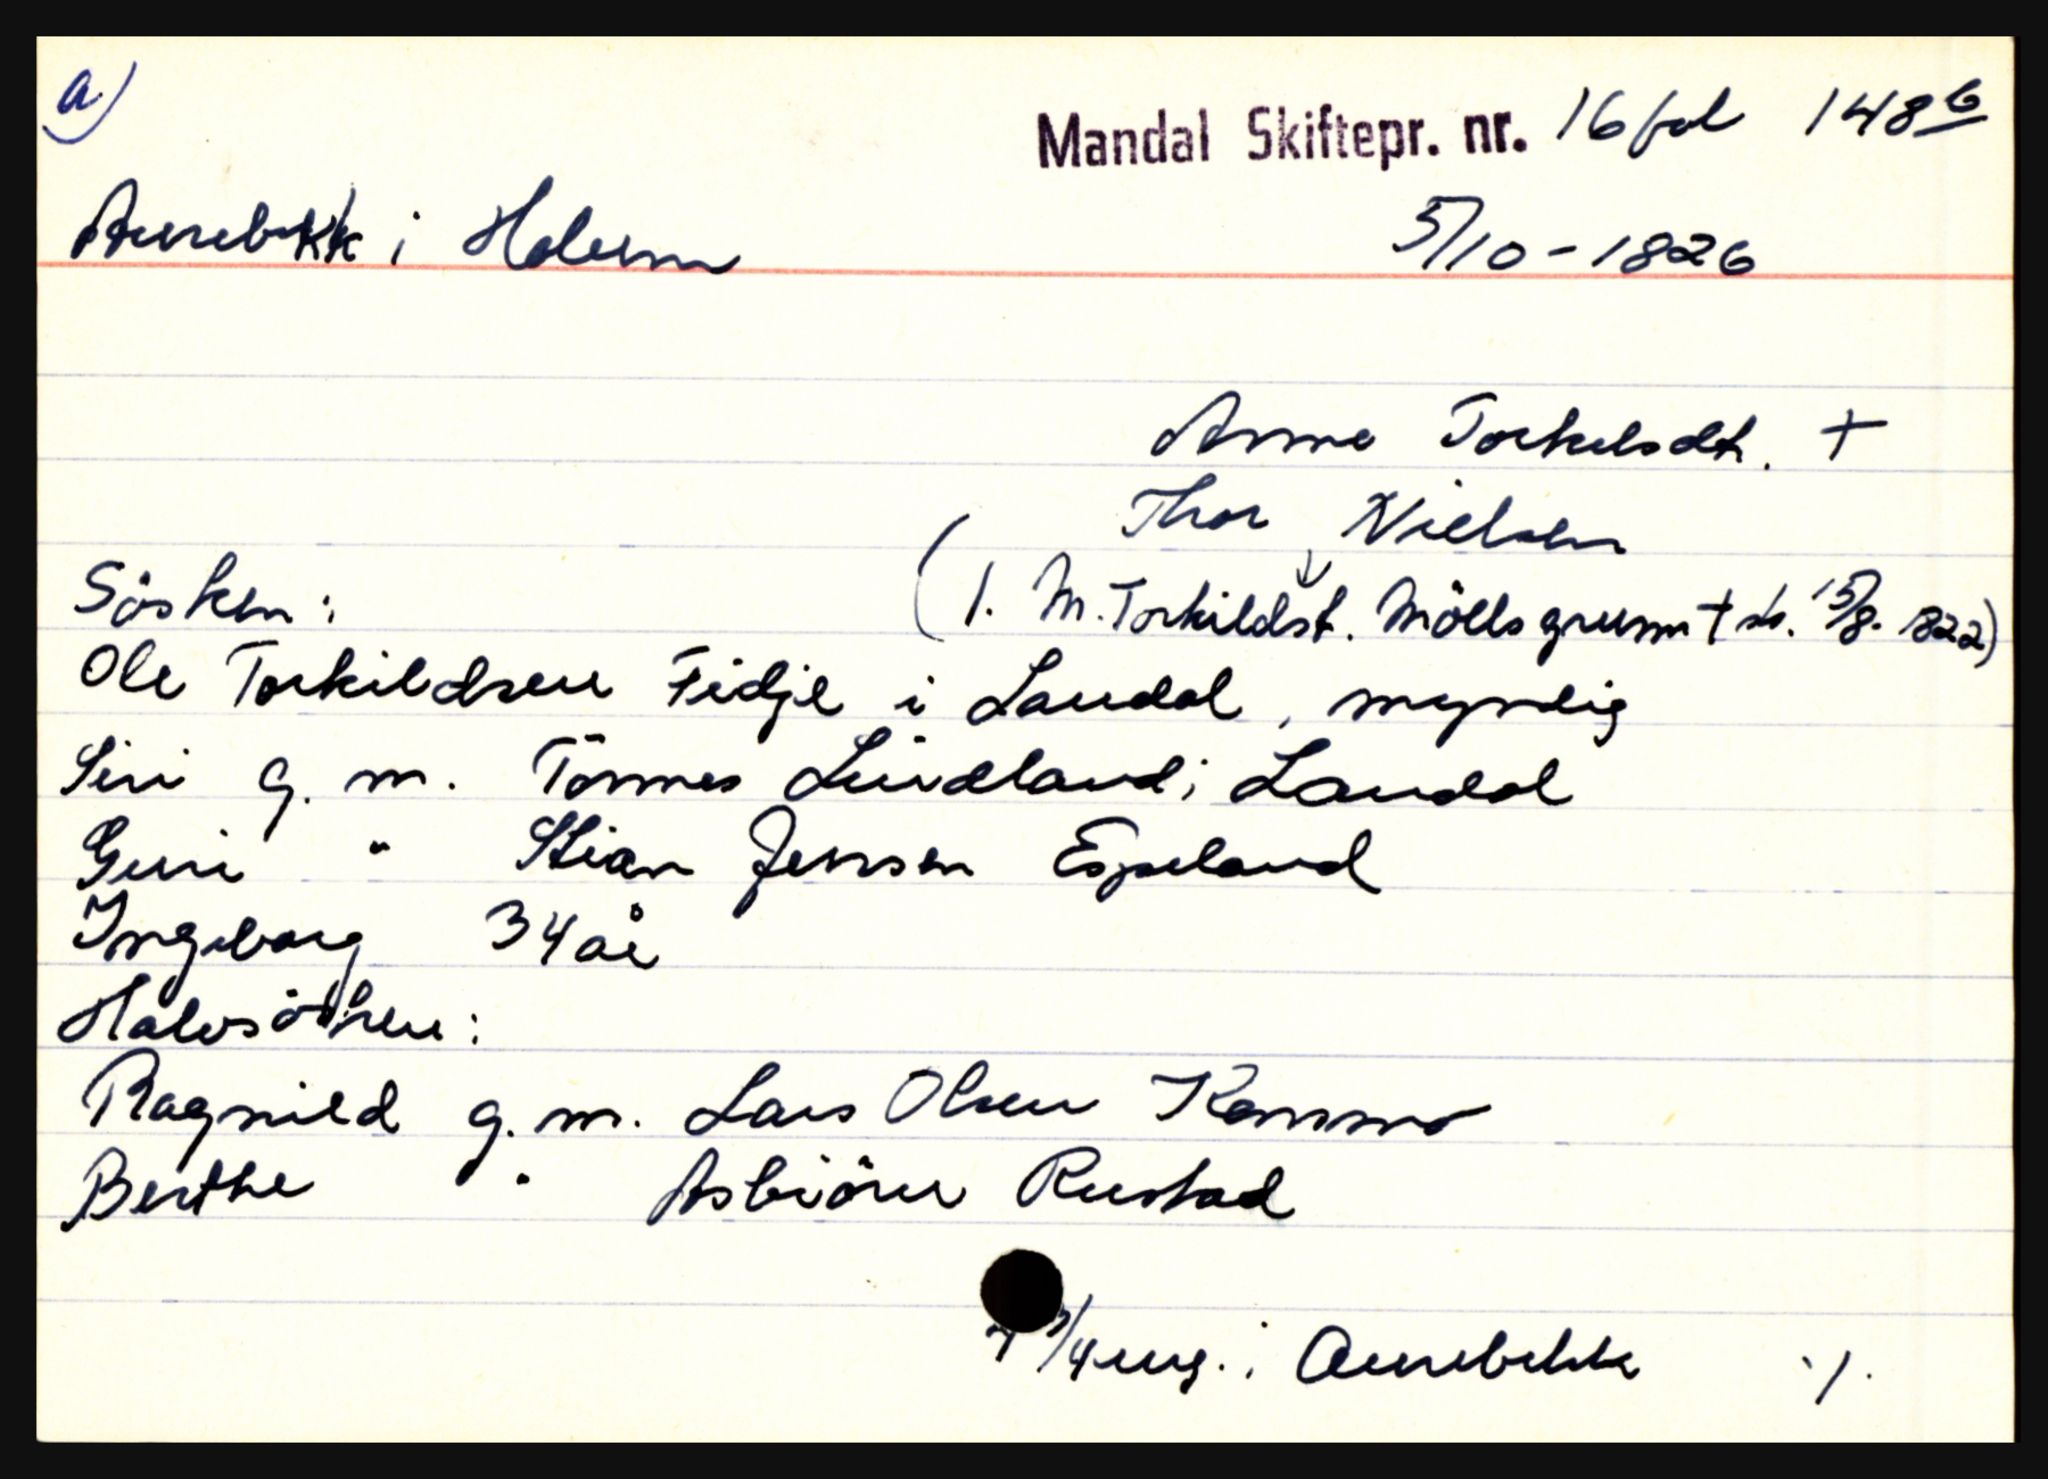 a)
Mandal Skiftepr. nr. 16 fol 148 b
Aurebekk i Holum 5/10-1826
Anne Torkelsdt. +
Thor Nielsen
Sösken: (1. M. Torkildst. Mölls grunn + sk. 15/8. 1822)
Ole Torkildsen Fidje i Laudal, myndig
Siri g. m. Tönnes Lindland i Laudal
Guri " Stian Jensen Espeland
Ingeborg 34 år
Halvsösken:
Ragnild g. m. Lars Olsen
Berthe " Asbiörn Rustad
/4 eng. i Aurebekk ·/.